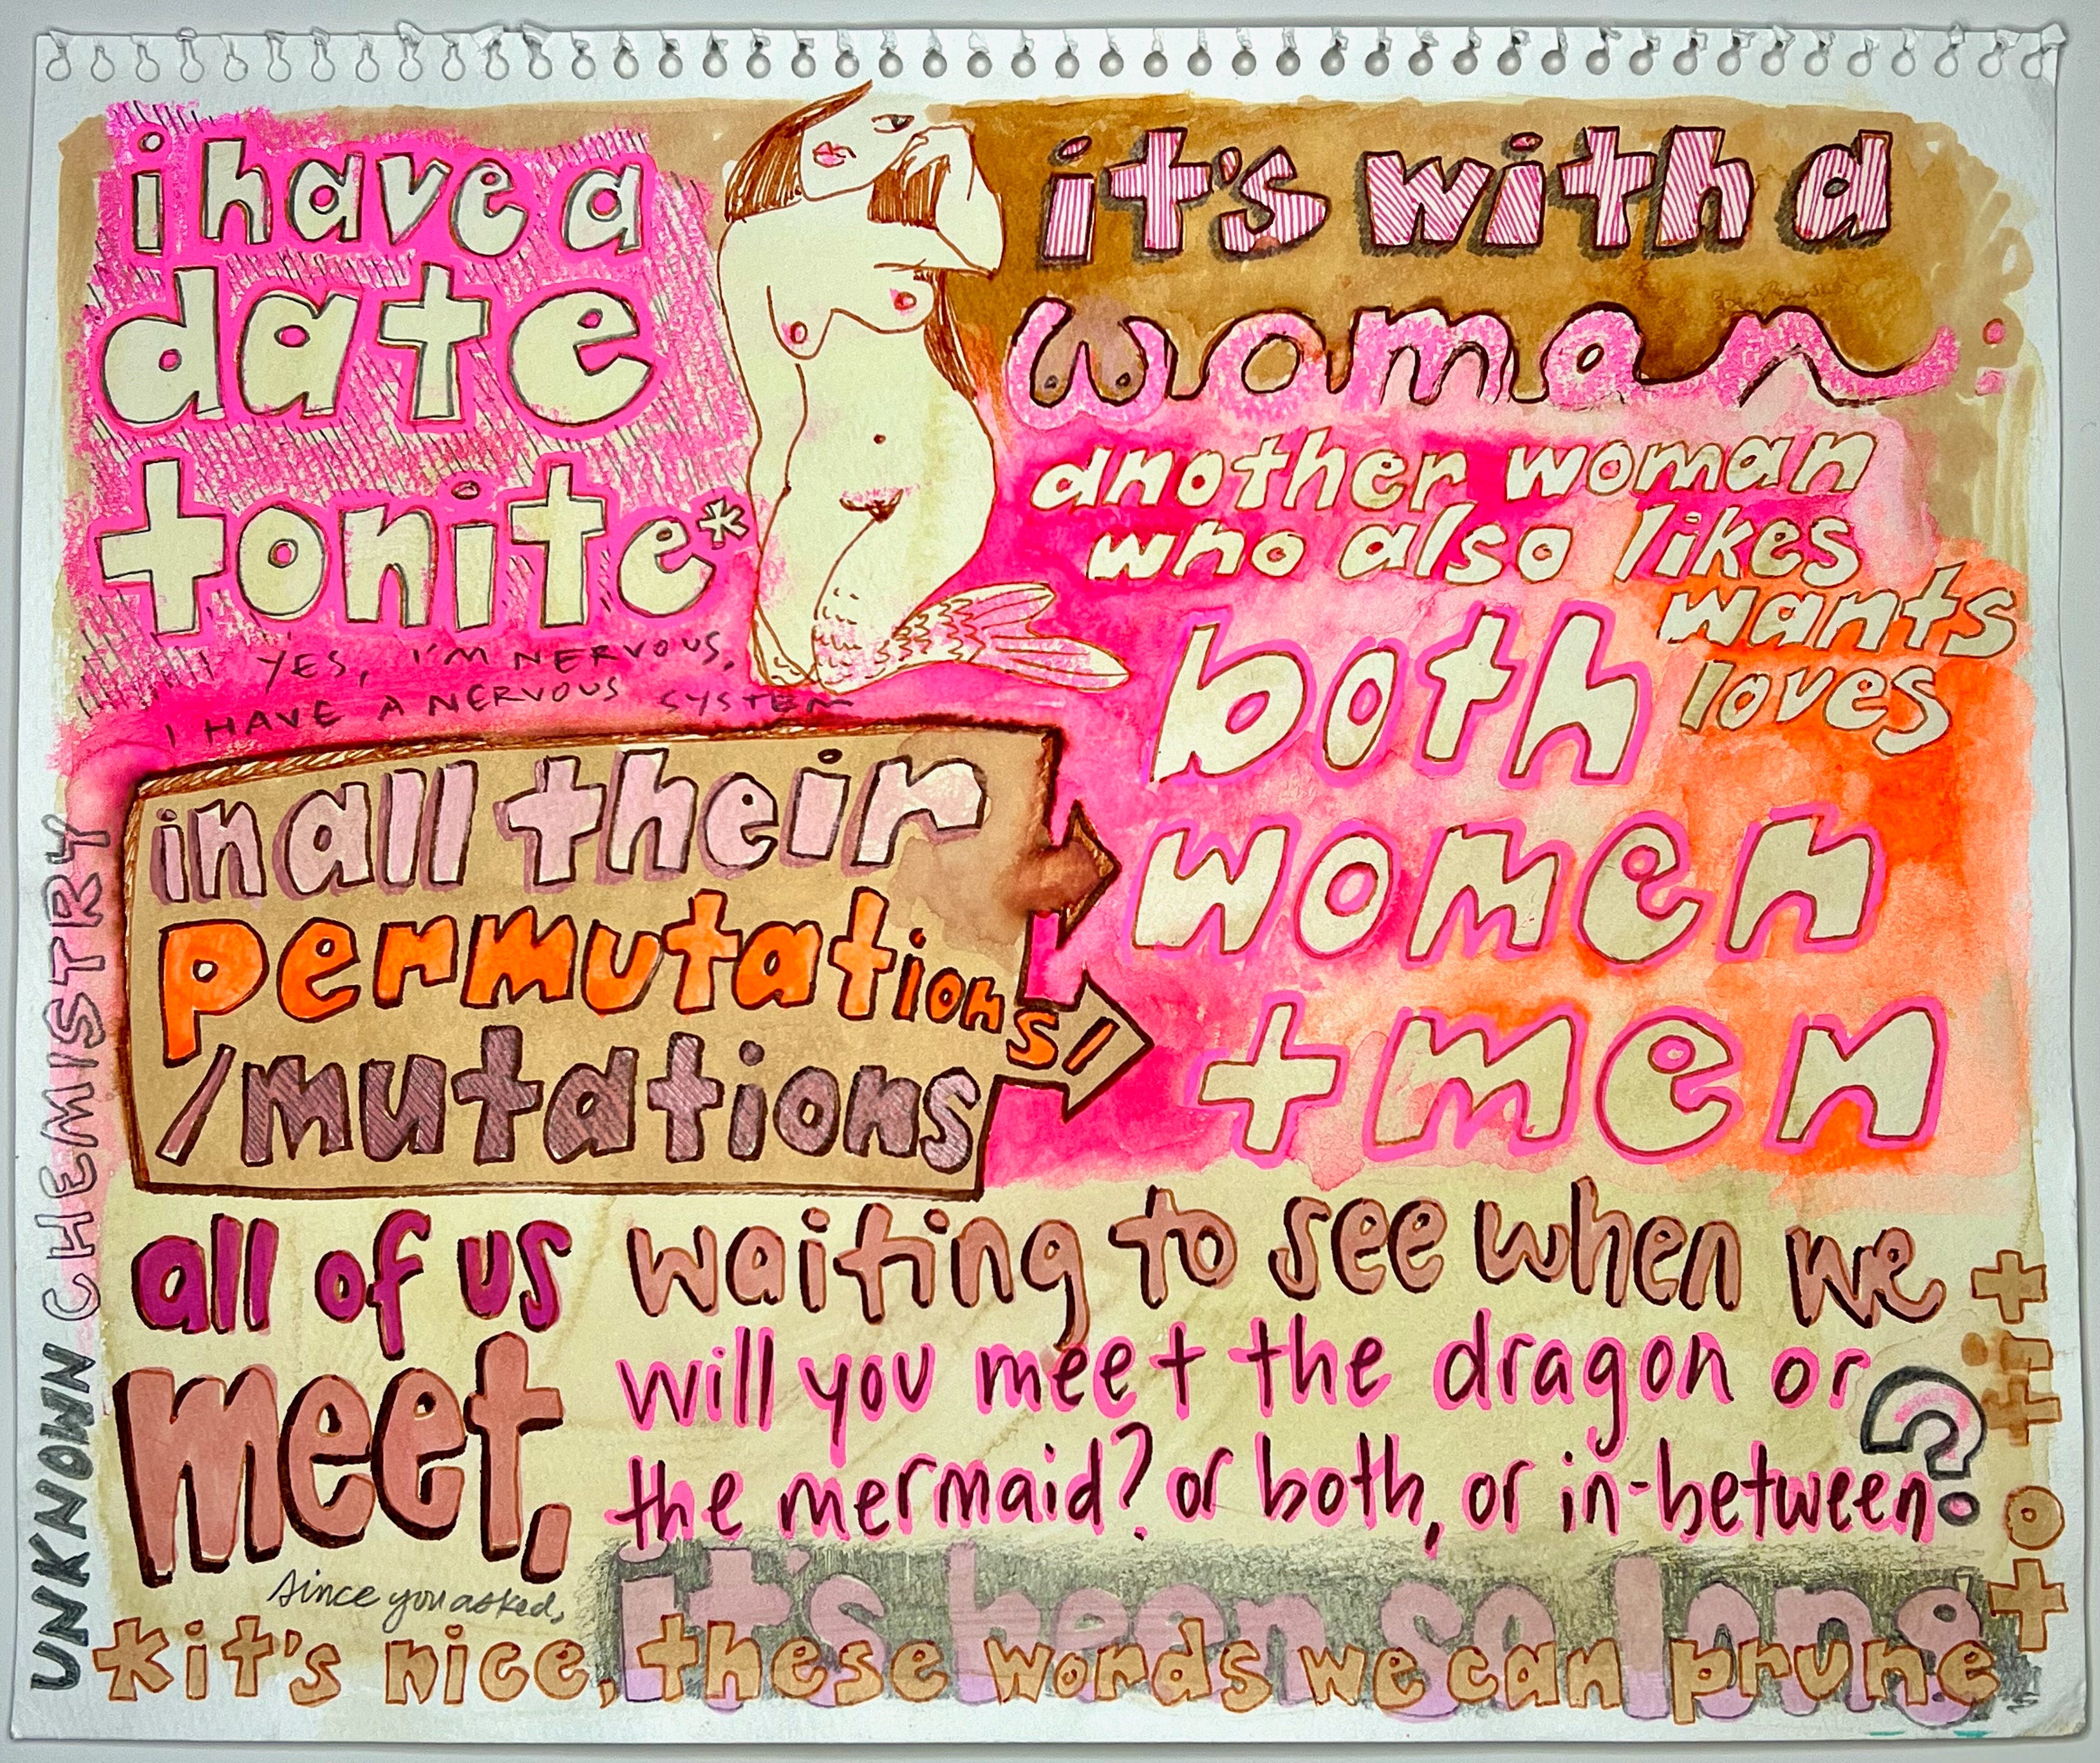 i have a
date
tonite*
YES, I'M NERVOUS,
I HAVE A NERVOUS SYSTEM
it's with a
woman:
another woman
who also likes
wants
loves
both
women
+men
in all their
permutations/
/mutations
all of us waiting to see when we
meet,
will you meet the dragon or
the mermaid? or both, or in-between?
it's been so long
since you asked,
*it's nice, these words we can prune
to fit
UNKNOWN CHEMISTRY